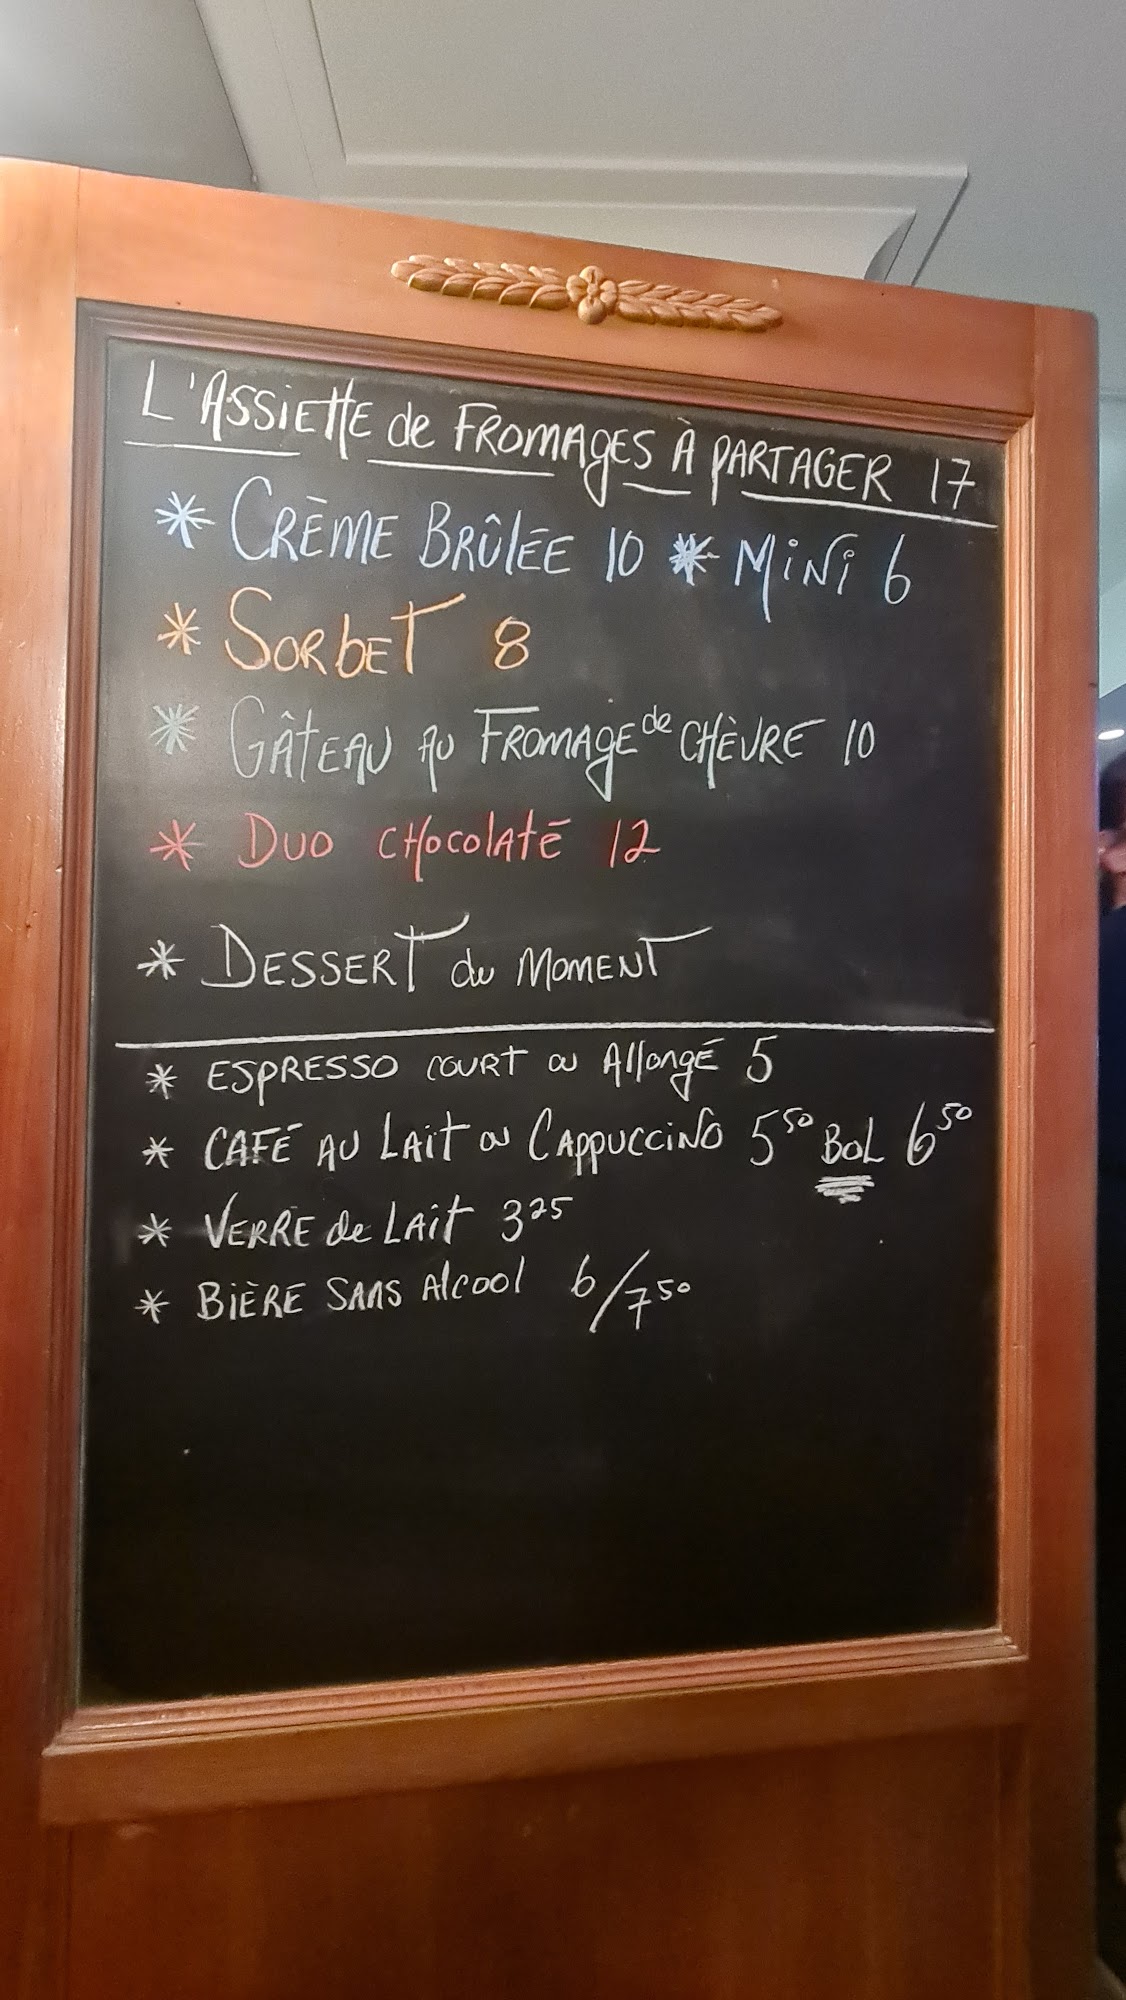 L'ASSIETTE de FROMAGES À PARTAGER 17
* CRÈME BRÛLÉE 10 * MINI 6
* SORBET 8
* GÂTEAU AU FROMAGE de CHÈVRE 10
* DUO CHOCOLATÉ 12
* DESSERT du MOMENT
* ESPRESSO COURT ou Allongé 5
* CAFÉ AU LAIT ou CAPPUCCINO 5 50 BOL 6 50
* VERRE de LAIT 3 25
* BIÈRE SANS Alcool 6/7 50